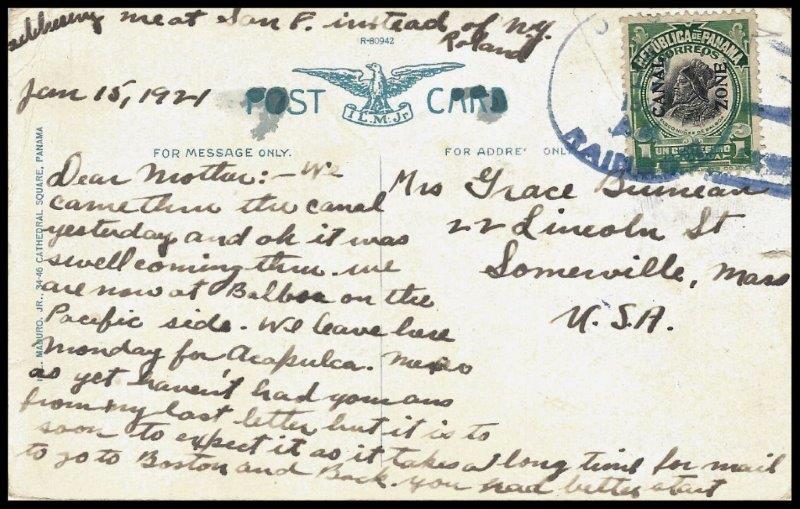 addressing meat San F. instead of N.Y.
Roland
R-80942
Jan 15, 1921
POST CARD
I.L.M.Jr.
FOR MESSAGE ONLY.
FOR ADDRE ONLY
Dear Mother:- We
came thru the canal
yesterday and oh it was
swell coming thru. we
are now at Balboa on the
Pacific side. We leave here
Monday for Acapulca. Mexico
as yet haven't had your ans
from my last letter but it is to
soon to expect it as it takes a long time for mail
to go to Boston and Back. you had better start
Mrs Grace
22 Lincoln St
Somerville, Mass
U.S.A.
MADURO, JR., 34-46 CATHEDRAL SQUARE, PANAMA
REPUBLICA DE PANAMA
CORREOS
CANAL ZONE
1 UN CENTESIMO 1